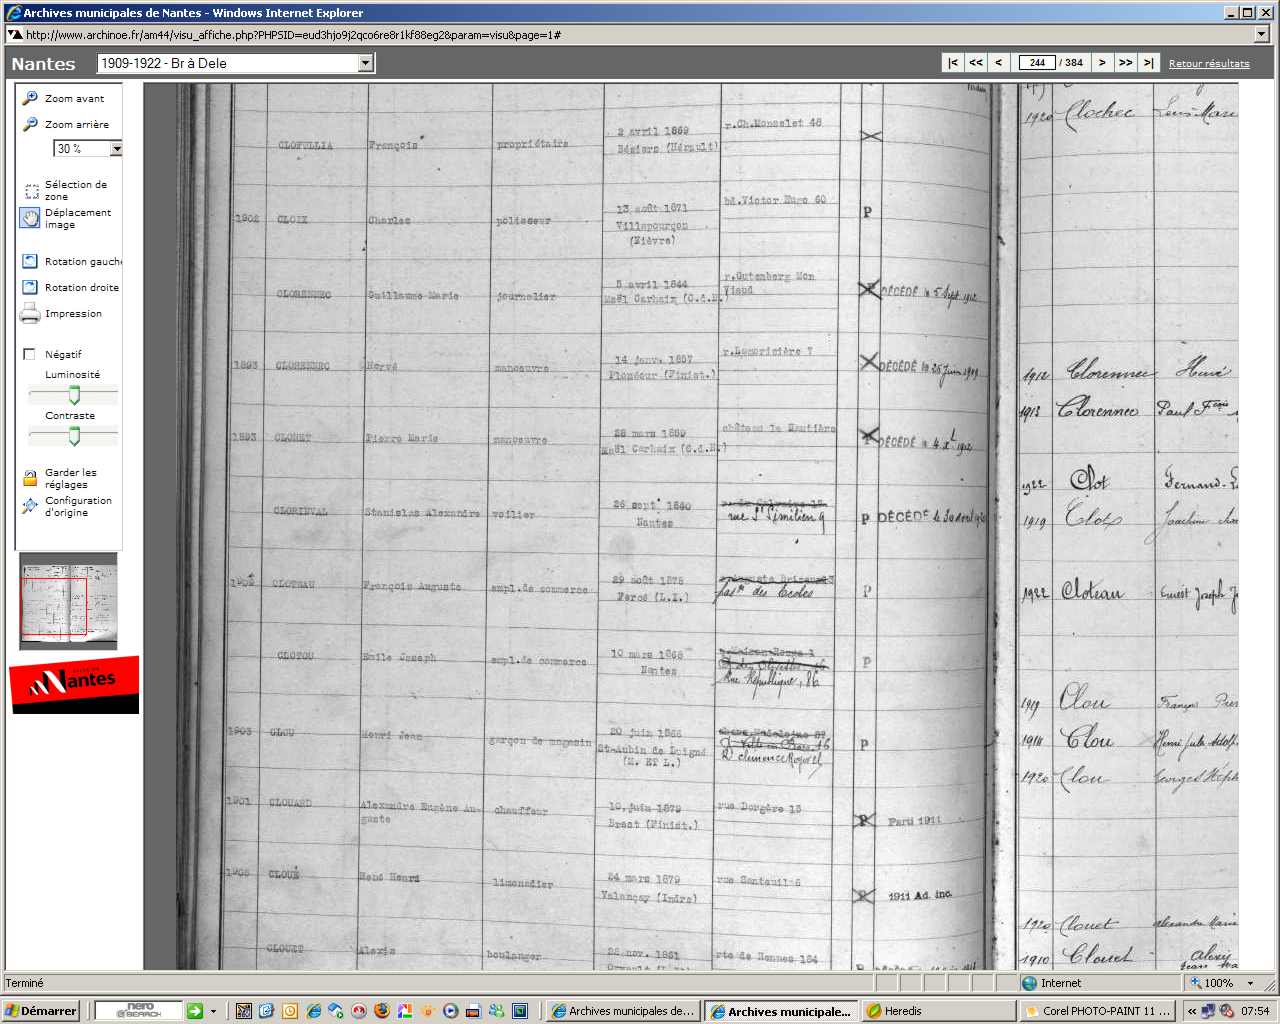 Archives municipales de Nantes - Windows Internet Explorer
http://www.archinoe.fr/am44/visu_affiche.php?PHPSID=eud3hjo9j2qco6re8r1kf88eg2&param=visu&page=1#
Nantes 1909-1922 - Br à Dele |< << < 244 / 384 > >> >| Retour résultats
Zoom avant
Zoom arrière
30 %
Sélection de
zone
Déplacement
image
Rotation gauche
Rotation droite
Impression
Négatif
Luminosité
Contraste
Garder les
réglages
Configuration
d'origine
Nantes
CLOFULLIA François propriétaire 2 avril 1869 r.Ch.Monselet 48
Béziers (Hérault)
1902 CLOIX Charles polisseur 13 août 1871 bd.Victor Hugo 60 P
Villapourçon
(Nièvre)
CLORENNEC Guillaume Marie journalier 5 avril 1844 r.Gutenberg Mon
Viaud
Maël Carhaix (C.d.N.) DÉCÉDÉ le 5 Sept 1912
1893 CLORENNEC Hervé manoeuvre 14 janv. 1857 r.Lamoricière 7
Plonéour (Finist.) DÉCÉDÉ le 25 Juin 1909
1893 Pierre Marie manoeuvre 28 mars 1859 château la Hautière
Maël Carhaix (C.d.N.) DÉCÉDÉ
Stanislas Alexandre voilier 26 sept. 1840
Nantes rue St Similien 9 P DÉCÉDÉ le 30 avril
1902 CLOTEAU François Auguste empl.de commerce 29 août 1875
Fercé (L.I.) des Ecoles P
CLOTOU Emile Joseph empl.de commerce 10 mars 1868
Nantes P
Rue République, 86
1903 CLOU Henri Jean garçon de magasin 20 juin 1866
St-Aubin de Luigné P
(M. ET L.)
1901 CLOUARD Alexandre Eugène Au-
guste chauffeur 10 juin 1879 rue Dorgère 15
Brest (Finist.) P Parti 1911
1908 CLOUÉ René Henri limonadier 24 mars 1879 rue Santeuil 6
Valançay (Indre) P 1911 Ad. inc.
CLOUET Alexis boulanger 28 nov. 1851 rte de Rennes 184
1920 Clochec Louis Marie
1912 Clorennec Hervé
1913 Clorennec Paul
1922 Clot Fernand
1919 Clot Joachim
1922 Cloteau Ernest Joseph
1919 Clou François
1914 Clou Henri Jules Adolp
1920 Clou Georges
1920 Clouet Alexandre Marie
1910 Clouet Alexis
Terminé Internet 100%
Démarrer nero SEARCH Archives municipales de... Archives municipale... Heredis Corel PHOTO-PAINT 11 ... 07:54